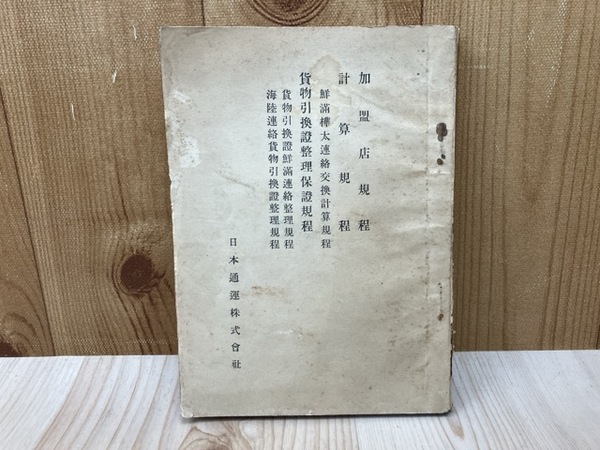 加盟店規程
計算規程
鮮滿樺太連絡交換計算規程
貨物引換證整理保證規程
貨物引換證鮮滿連絡整理規程
海陸連絡貨物引換證整理規程
日本通運株式會社